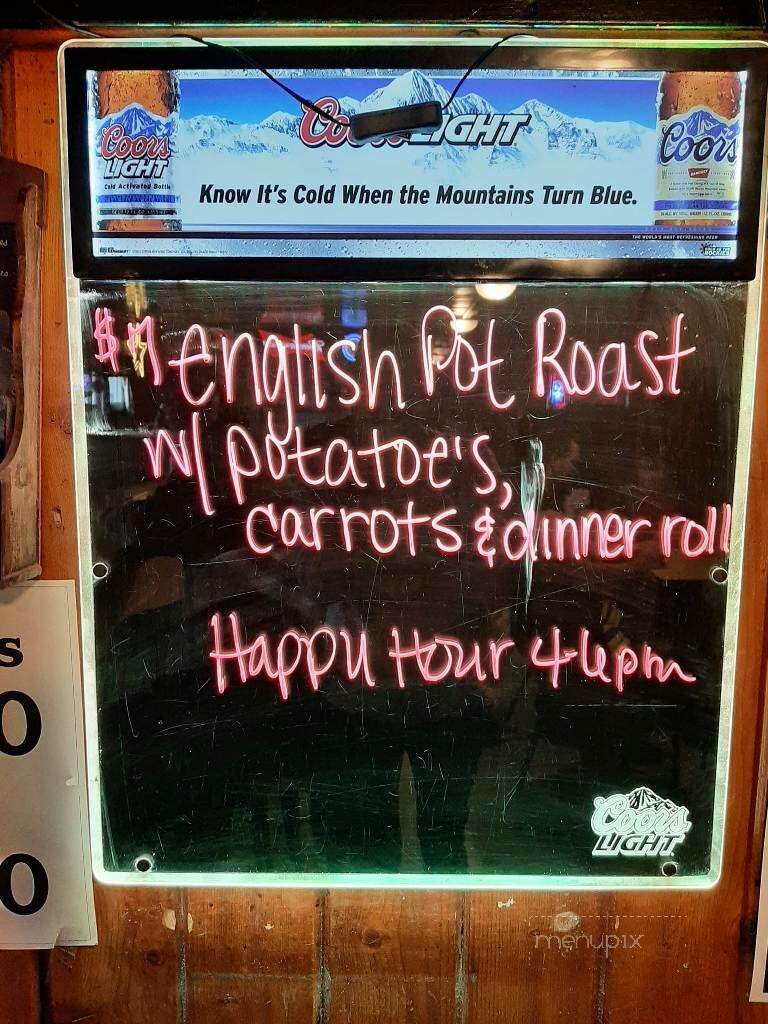 Coors LIGHT
Coors
LIGHT
Cold Activated Bottle
Coors
BANQUET
Know It's Cold When the Mountains Turn Blue.
THE WORLD'S MOST REFRESHING BEER
$7 English Pot Roast
w/ potatoe's,
carrots & dinner roll
Happy Hour 4-6pm
s
0
0
Coors
LIGHT
menupix